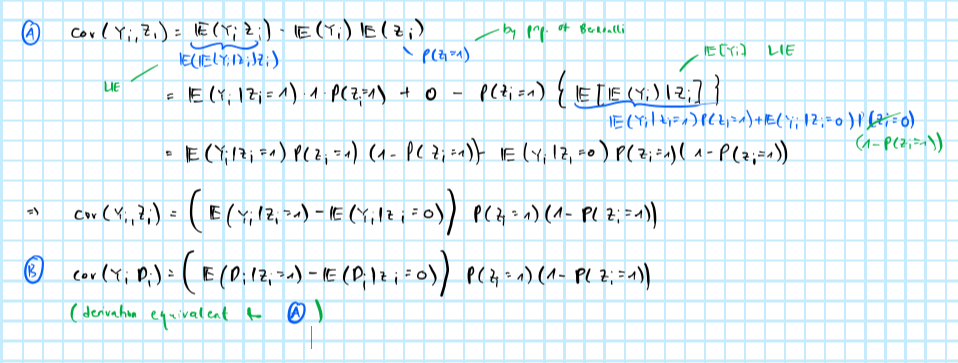 Ⓐ cov(Y_i, Z_i) = 𝔼(Y_i Z_i) - 𝔼(Y_i) 𝔼(Z_i) — by prop. of Bernoulli
𝔼(𝔼(Y_i|Z_i)Z_i) P(Z_i=1) 𝔼[Y_i] LIE
LIE = 𝔼(Y_i|Z_i=1)·1·P(Z_i=1) + 0 - P(Z_i=1) { 𝔼[𝔼(Y_i)|Z_i] }
𝔼(Y_i|Z_i=1)P(Z_i=1)+𝔼(Y_i|Z_i=0)P(Z_i=0)
= 𝔼(Y_i|Z_i=1) P(Z_i=1) (1-P(Z_i=1)) - 𝔼(Y_i|Z_i=0) P(Z_i=1)(1-P(Z_i=1)) (1-P(Z_i=1))
⇒ cov(Y_i, Z_i) = (𝔼(Y_i|Z_i=1) - 𝔼(Y_i|Z_i=0)) P(Z_i=1)(1-P(Z_i=1))
Ⓑ cov(Y_i D_i) = (𝔼(D_i|Z_i=1) - 𝔼(D_i|Z_i=0)) P(Z_i=1)(1-P(Z_i=1))
(derivation equivalent to Ⓐ)